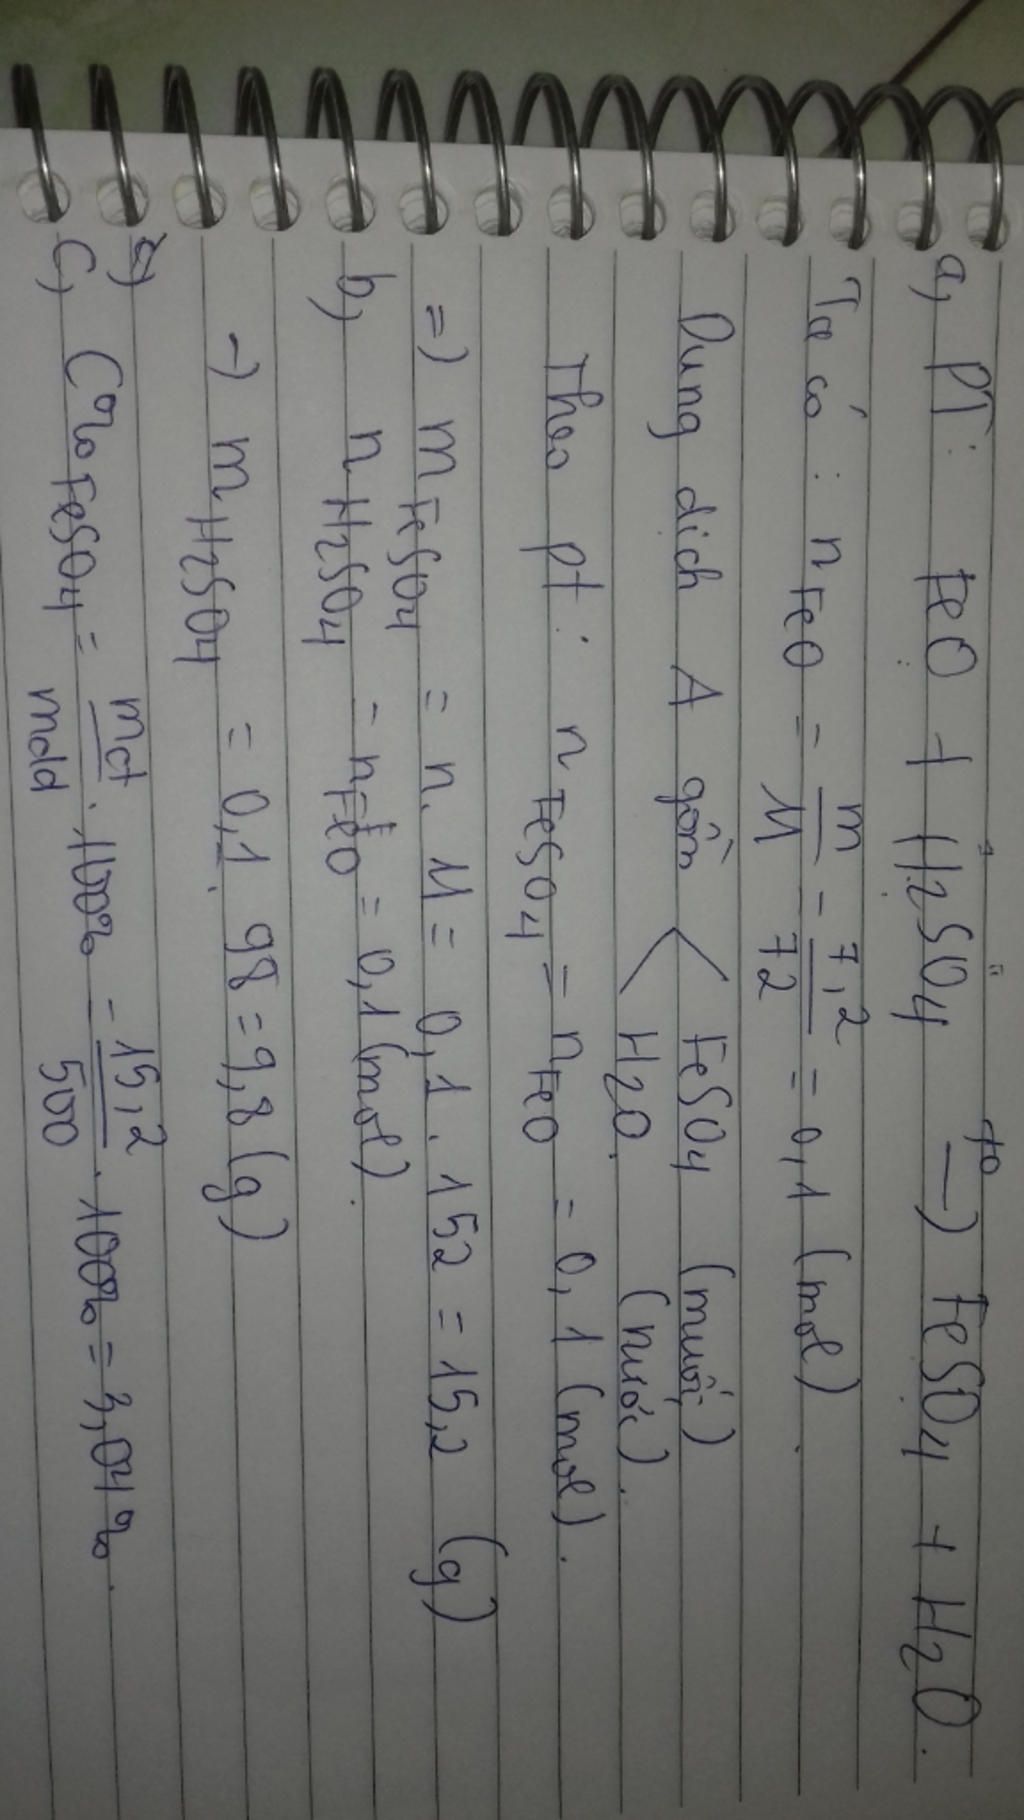 a, PT: FeO + H2SO4 t0→ FeSO4 + H2O.
Ta có: nFeO = m/M = 7,2/72 = 0,1 (mol).
Dung dịch A gồm < FeSO4 (muối)
H2O. (nước).
Theo pt: nFeSO4 = nFeO = 0,1 (mol).
=) mFeSO4 = n. M = 0,1. 152 = 15,2 (g)
b, nH2SO4 = nFeO = 0,1 (mol).
→ mH2SO4 = 0,1. 98 = 9,8 (g)
c, C%FeSO4 = mct/mdd . 100% = 15,2/500 . 100% = 3,04%.